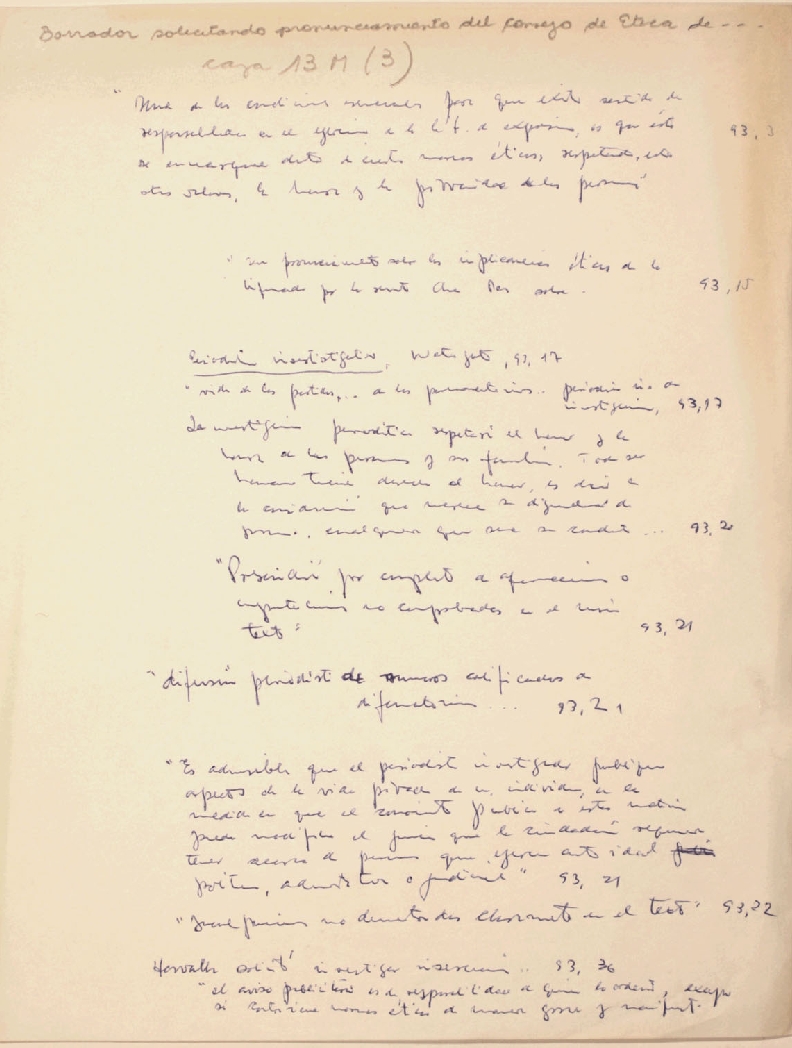 Borrador solicitando pronunciamiento del Consejo de Etica de - - -
caja 13 M (3)
" Una de las condiciones para que exista sentido de
responsabilidad en el ejercicio de la de expresión, es que esto
se enmarque dentro de ciertas normas éticas, respetando, entre
otros valores, la honra y la privacidad de las personas" 93, 3
" un pronunciamiento sobre las implicancias éticas de lo
por la revista Qué Pasa sobre . 93, 15
Periodismo investigativo, Watergate, 93, 17
" vida de los partidos, ... a los .. periodismo no
investigación, 93, 17
La investigación periodística respetará el honor y la
honra de las personas y sus familias. Todo ser
humano tiene derecho al honor, es decir a
la consideración que merece su dignidad de
persona, cualquiera que sea su conducta ... 93, 20
"Prescindirá por completo de afirmaciones o
imputaciones no comprobadas en el mismo
texto" 93, 21
"difusión periodística de rumores calificados de
difamatorios ... 93, 21
"Es admisible que el periodista investigador publique
aspectos de la vida privada de un individuo, en la
medida en que el conocimiento público de estas materias
puede modificar el juicio que la ciudadanía requiere
tener acerca de personas que ejercen autoridad
política, administrativa o judicial" 93, 21
" juicios no demostrados claramente en el texto" 93, 22
Horvath solicitó investigar inserción .. 93, 36
"el aviso publicitario es de responsabilidad de quien lo ordena, excepto
si contraviene normas éticas de manera grave y manifiesta.